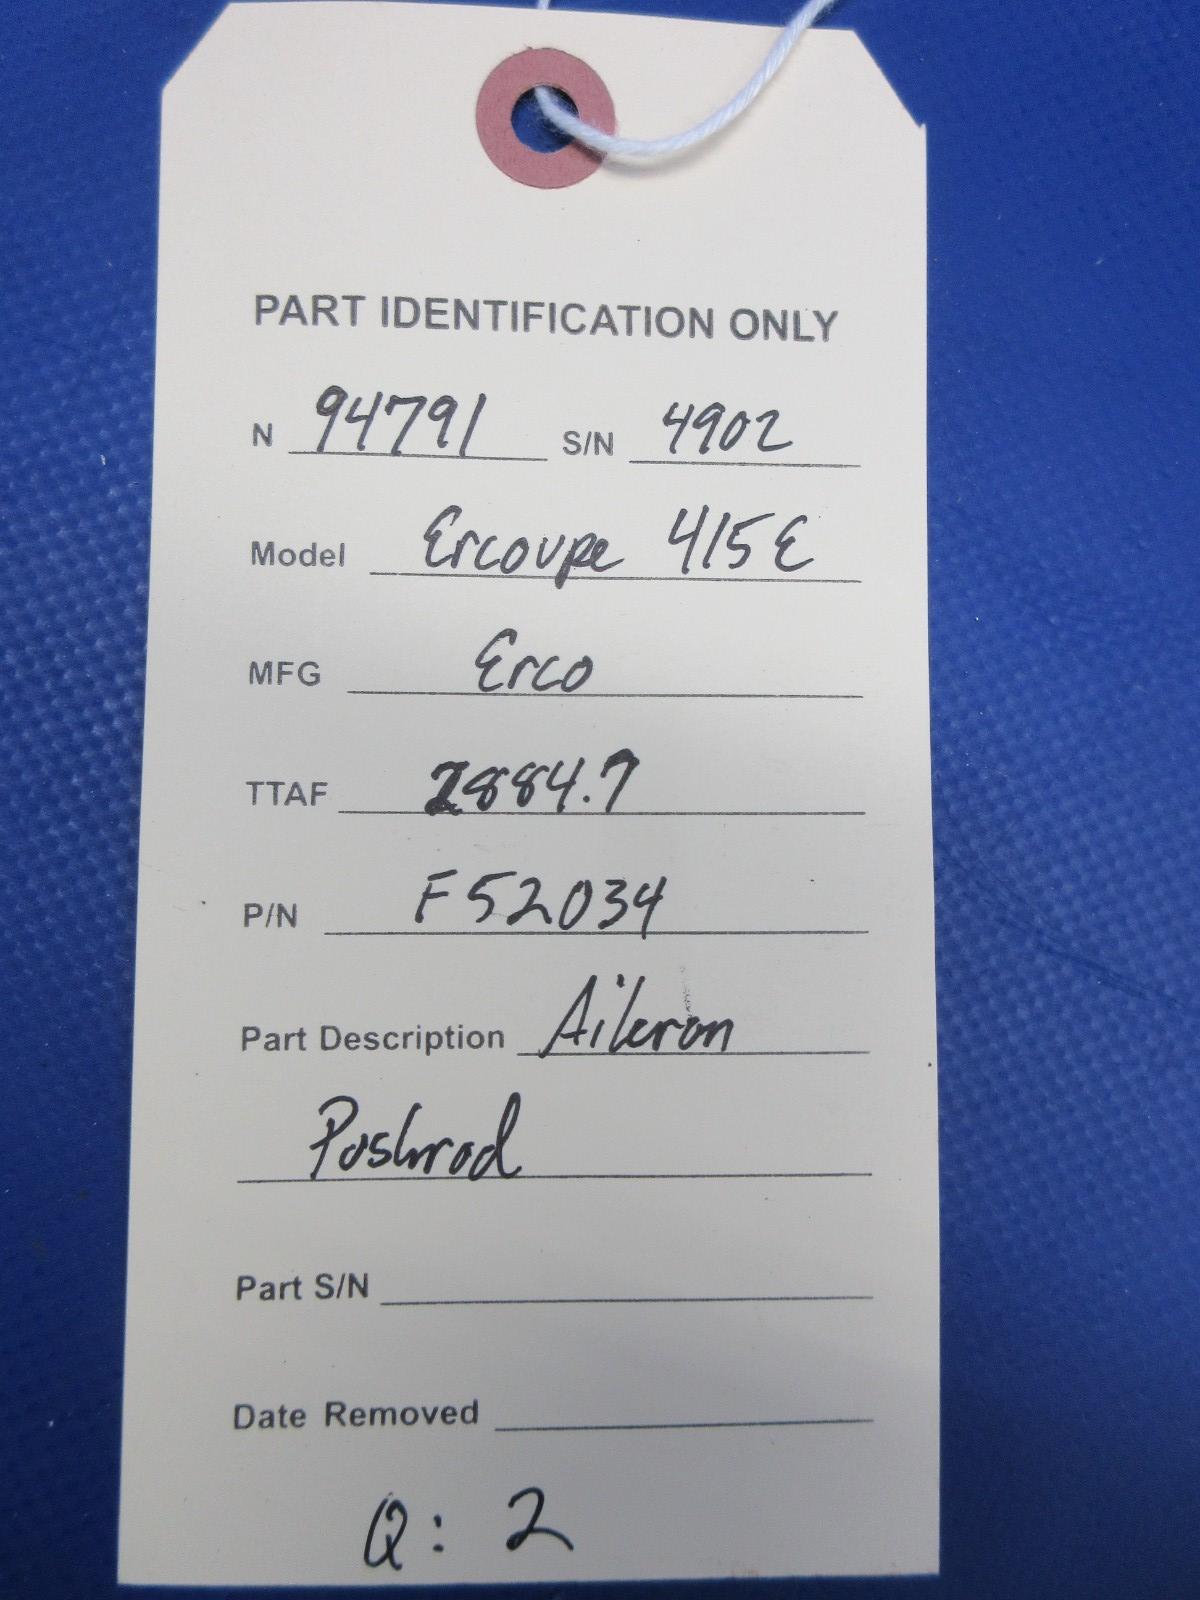 PART IDENTIFICATION ONLY
N 94791 S/N 4902
Model Ercoupe 415E
MFG Erco
TTAF 2884.7
P/N F52034
Part Description Aileron
Pushrod
Part S/N
Date Removed
Q: 2